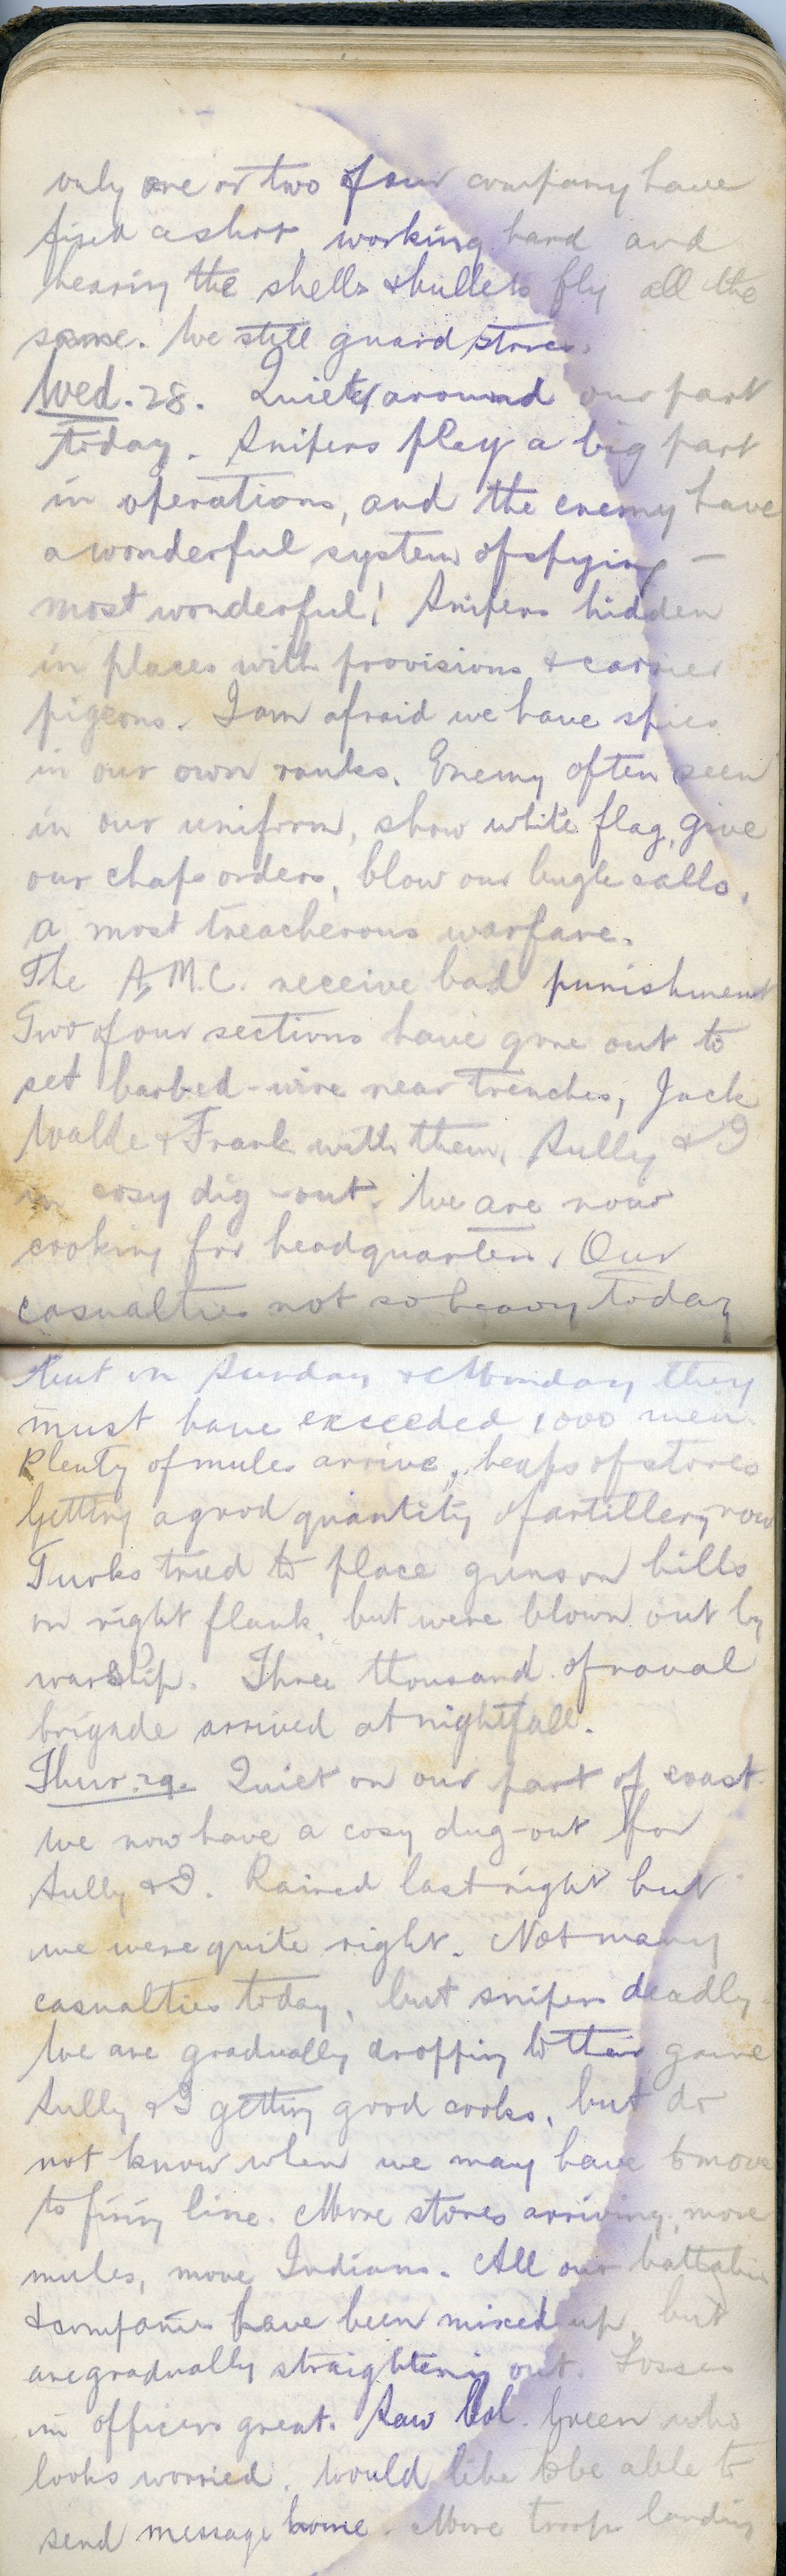 only one or two of our company have
fired a shot, working hard and
hearing the shells & bullets fly all the
same. We still guard stores.
Wed. 28. Quiet around our part
today. Snipers play a big part
in operations, and the enemy have
a wonderful system of spying —
most wonderful! Snipers hidden
in places with provisions & carrier
pigeons. I am afraid we have spies
in our own ranks. Enemy often seen
in our uniform, show white flag, give
our chaps orders, blow our bugle calls,
a most treacherous warfare.
The A.M.C. receive bad punishment
Two of our sections have gone out to
set barbed-wire near trenches, Jack
& Frank with them, Sully & I
in cosy dig-out. We are now
cooking for headquarters. Our
casualties not so heavy today
but on Sunday & Monday they
must have exceeded 1000 men.
Plenty of mules arrive, heaps of stores
Getting a good quantity of artillery now
Turks tried to place guns on hills
on right flank, but were blown out by
warship. Three thousand of naval
brigade arrived at nightfall.
Thur. 29. Quiet on our part of coast.
We now have a cosy dug-out for
Sully & I. Rained last night but
we were quite right. Not many
casualties today, but snipers deadly.
We are gradually dropping to their game
Sully & I getting good cooks, but do
not know when we may have to move
to firing line. More stores arriving, more
mules, more Indians. All our battalion
& companies have been mixed up, but
are gradually straightening out. Losses
in officers great. Saw Col. Green who
looks worried. Would like to be able to
send message home. More troops landing